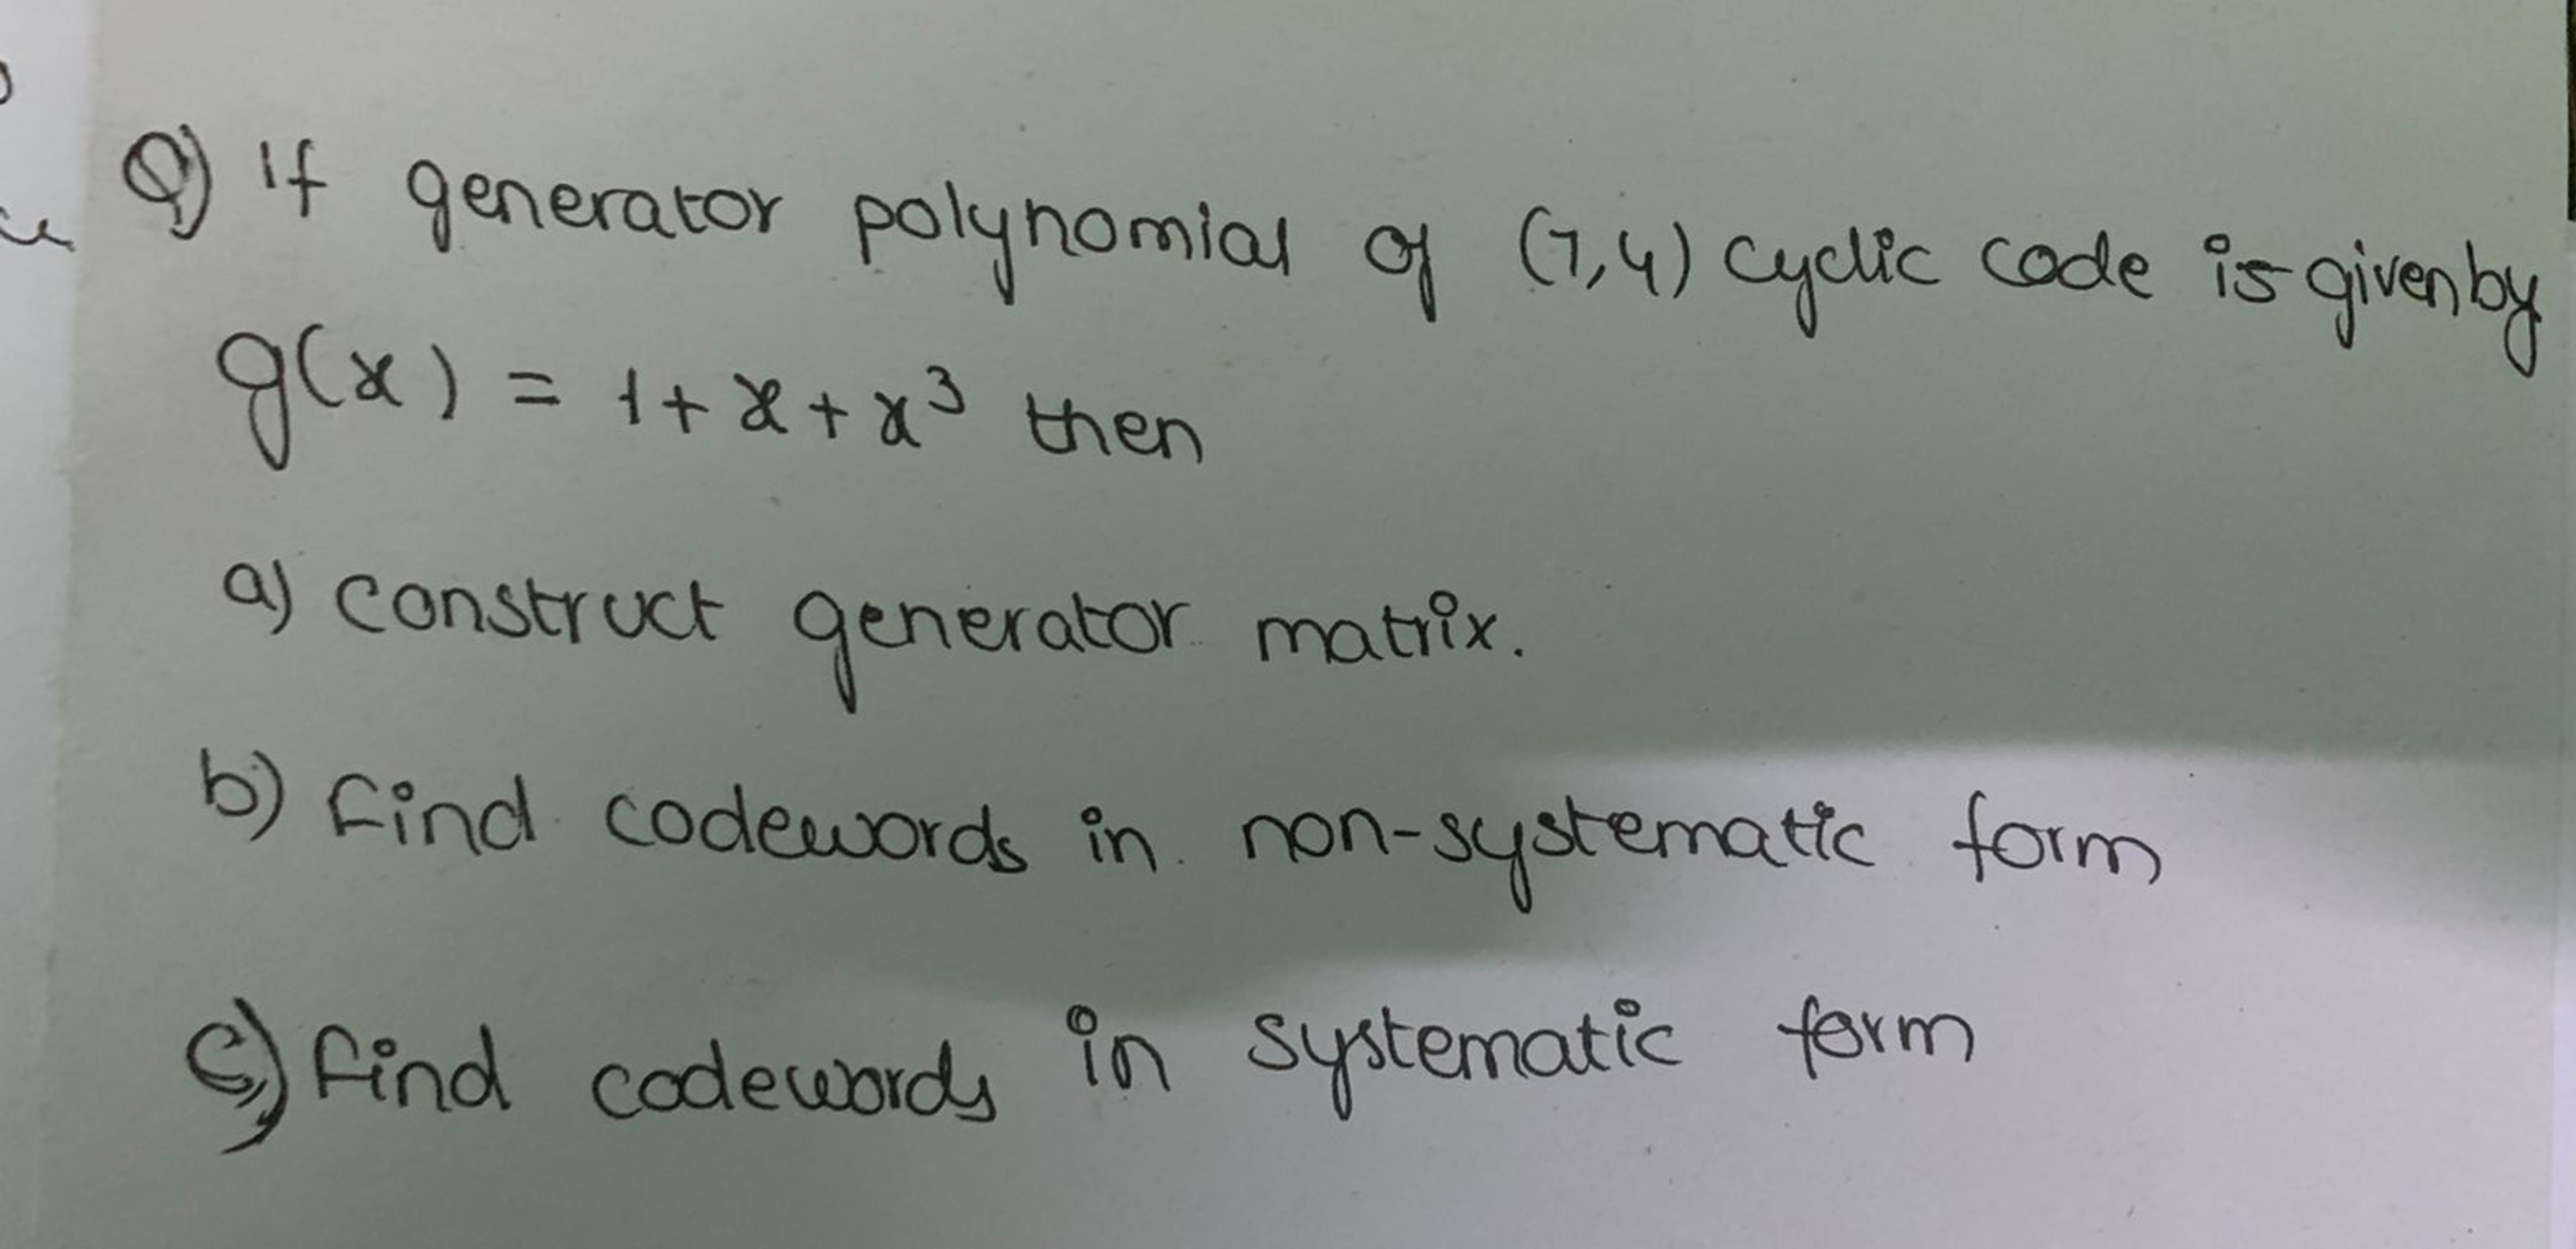 Q) If generator polynomial of (7,4) cyclic code is given by
g(x) = 1 + x + x³ then
a) construct generator matrix.
b) find codewords in non-systematic form
c) find codewords in systematic form